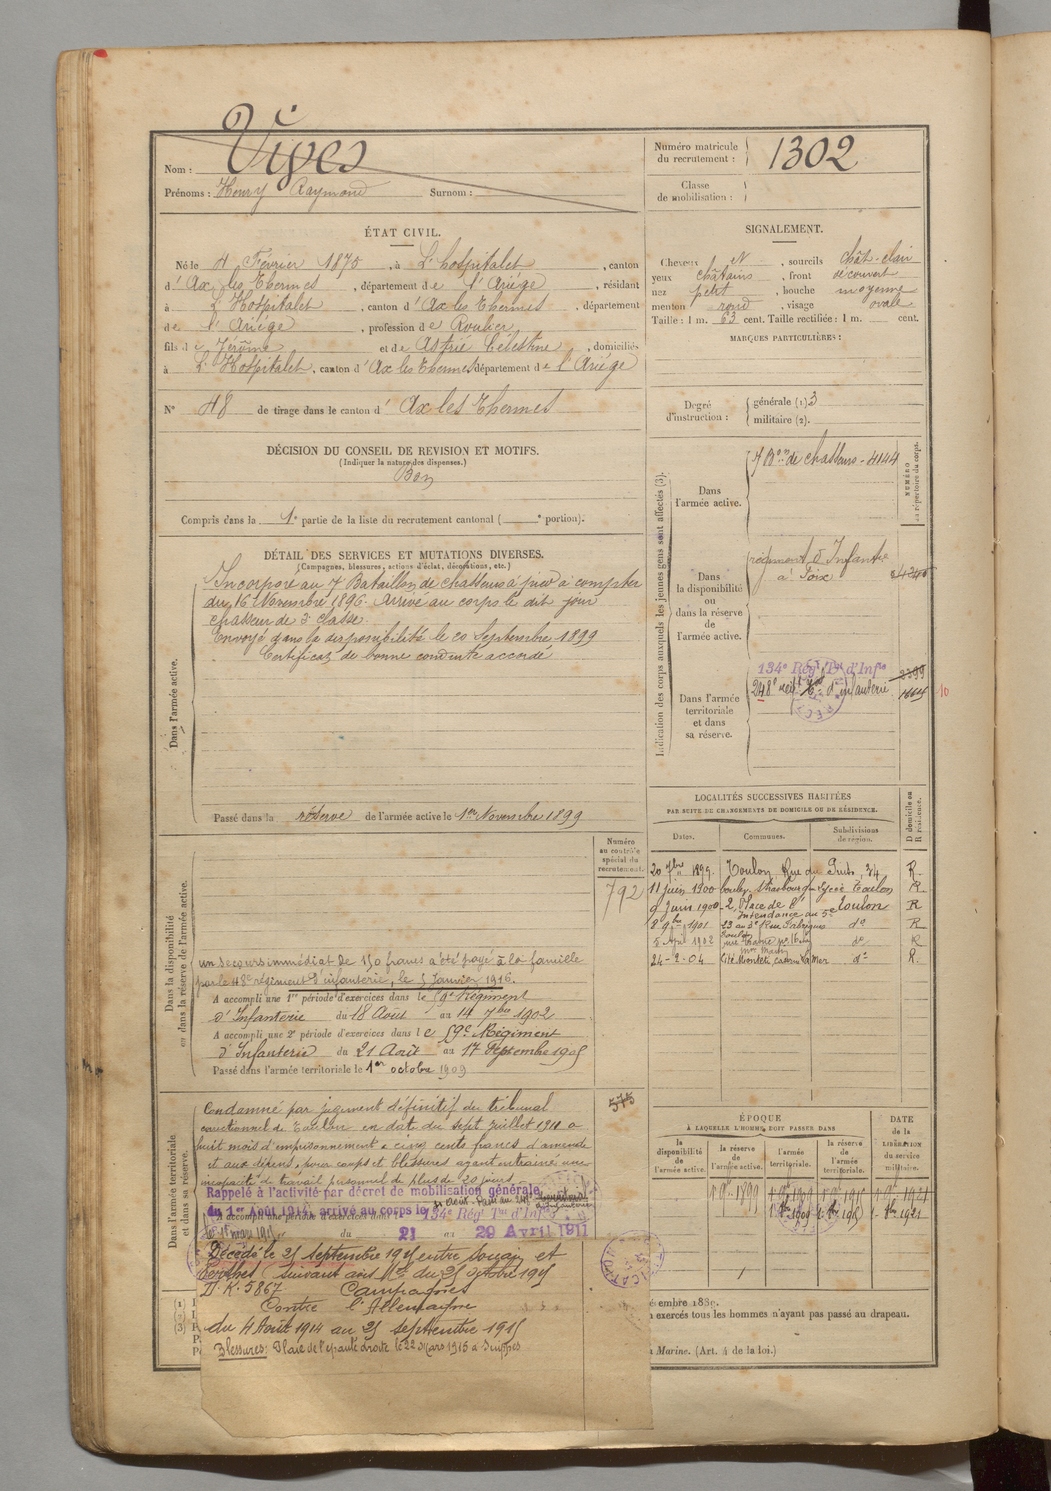 Nom : Vives
Prénoms : Henry Raymond Surnom :
Numéro matricule du recrutement : 1302
Classe de mobilisation :
ÉTAT CIVIL.
Né le 4 Février 1875, à L'hospitalet, canton
d'Ax les Thermes, département de l'Ariége, résidant
à L'Hospitalet, canton d'Ax les Thermes, département
de l'Ariége, profession de Roulier
fils de Jérôme et de Astrié Célestine, domiciliés
à L'Hospitalet, canton d'Ax les Thermes département de l'Ariége
N° 48 de tirage dans le canton d'Ax les Thermes
SIGNALEMENT.
Cheveux N, sourcils chât-clair
yeux châtains, front découvert
nez petit, bouche moyenne
menton rond, visage ovale
Taille : 1 m. 63 cent. Taille rectifiée : 1 m. cent.
MARQUES PARTICULIÈRES :
Degré d'instruction : générale (1) 3
militaire (2).
DÉCISION DU CONSEIL DE REVISION ET MOTIFS.
(Indiquer la nature des dispenses.)
Bon
Compris dans la 1e partie de la liste du recrutement cantonal ( e portion).
DÉTAIL DES SERVICES ET MUTATIONS DIVERSES.
(Campagnes, blessures, actions d'éclat, décorations, etc.)
Dans l'armée active.
Incorporé au 7 Bataillon de chasseurs à pied à compter
du 16 Novembre 1896. Arrivé au corps le dit jour
chasseur de 2e classe
Envoyé dans la disponibilité le 20 Septembre 1899
Certificat de bonne conduite accordé
Passé dans la réserve de l'armée active le 1er Novembre 1899
Indication des corps auxquels les jeunes gens sont affectés (3).
NUMÉRO au répertoire du corps.
Dans l'armée active.
7 Bon de chasseurs - 4144
Dans la disponibilité ou dans la réserve de l'armée active.
régiment d'Infanterie
à Foix
Dans l'armée territoriale et dans sa réserve.
134e Régt Tal d'Infie 2399
248e regt d'infanterie
10
LOCALITÉS SUCCESSIVES HABITÉES
PAR SUITE DE CHANGEMENTS DE DOMICILE OU DE RÉSIDENCE.
Dates. Communes. Subdivisions de région. D domicile ou R résidence.
20 7bre 1899 Toulon Rue du Puits, 34 R
11 juin 1900 boulev. Strasbourg Lycée Toulon R
9 Juin 1900 2, Place de l'Intendance au 5e Toulon R
8 9bre 1901 23 au 3e Rue Fabriques do R
5 Avril 1902 Toulon do R
24-2-04 do R
Dans la disponibilité ou dans la réserve de l'armée active.
Numéro au contrôle spécial du recrutement.
792
un secours immédiat de 150 francs a été payé à la famille
par le 48e régiment d'infanterie, le 5 Janvier 1916.
A accompli une 1re période d'exercices dans le Régiment
d'Infanterie du 18 Août au 14 7bre 1902
A accompli une 2e période d'exercices dans le 59e Régiment
d'Infanterie du 21 Août au 17 Septembre 1905
Passé dans l'armée territoriale le 1er octobre 1909
Dans l'armée territoriale et dans sa réserve.
575
Condamné par jugement définitif du tribunal
correctionnel de Toulon en date du sept Juillet 1911 à
huit mois d'emprisonnement & cinq cents francs d'amende
et aux dépens, pour coups et blessures ayant entrainé une
incapacité de travail personnel de plus de 20 jours
Rappelé à l'activité par décret de mobilisation générale
du 1er Août 1914, arrivé au corps le
A accompli une période d'exercices dans 134e Régt Tal d'Infie
du 21 au 29 Avril 1911
Décédé le 25 septembre 1915 entre Souain et
Perthes suivant avis Mel du 25 octobre 1915
D.K. 5867. Campagnes
Contre l'Allemagne
du 4 Août 1914 au 25 septembre 1915
Blessures : Plaie de l'épaule droite le 22 Mars 1915 à Suippes
ÉPOQUE
À LAQUELLE L'HOMME DOIT PASSER DANS
la disponibilité de l'armée active. la réserve de l'armée active. l'armée territoriale. la réserve de l'armée territoriale.
DATE de la LIBÉRATION du service militaire.
1 9bre 1899 1 9bre 1909 1 9bre 1915 1 9bre 1921
1 8bre 1909 1 8bre 1915 1 8bre 1921
exercés tous les hommes n'ayant pas passé au drapeau.
Marine. (Art. 4 de la loi.)